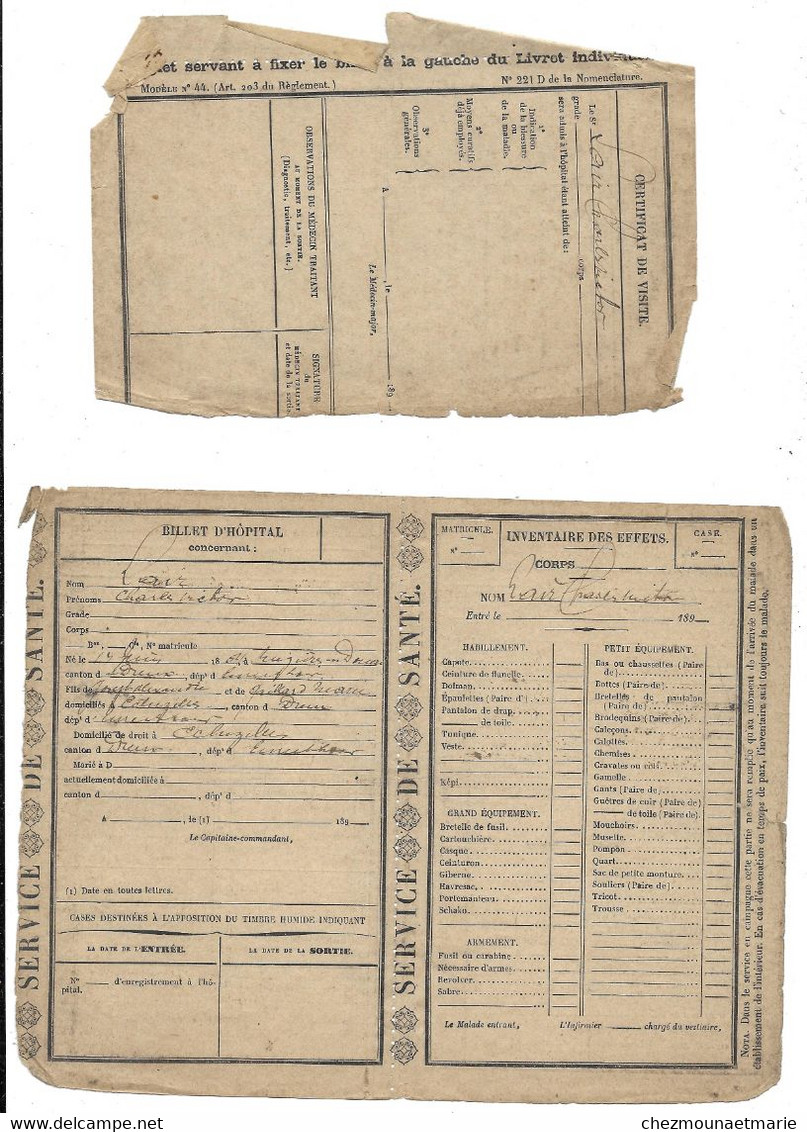 let servant à fixer le bi à la gauche du Livret individue
MODÈLE N° 44. (Art. 203 du Règlement.)
N° 221 D de la Nomenclature.
CERTIFICAT DE VISITE.
Le Sr Lair Charles Victor
grade corps
sera admis à l'hôpital étant atteint de :
1°
Indication
de la blessure
ou
de la maladie.
2°
Moyens curatifs
déjà employés.
3°
Observations
générales.
A , le 189
Le Médecin-major,
OBSERVATIONS DU MÉDECIN TRAITANT
AU MOMENT DE LA SORTIE.
(Diagnostic, traitement, etc.)
SIGNATURE
du
MÉDECIN TRAITANT
et date de la sortie.
SERVICE DE SANTÉ.
BILLET D'HÔPITAL
concernant :
Nom Lair
Prénoms Charles Victor
Grade
Corps
Bon, Cie, N° matricule
Né le 18 à
canton d Dreux, dép' d
Fils de et de
domiciliés à, canton d Dreux
dép' d
Domicile de droit à
canton d Dreux, dép' d
Marié à D
actuellement domiciliée à
canton d, dép' d
A, le (1) 189
Le Capitaine-commandant,
(1) Date en toutes lettres.
CASES DESTINÉES À L'APPOSITION DU TIMBRE HUMIDE INDIQUANT
LA DATE DE L'ENTRÉE.
LA DATE DE LA SORTIE.
N° d'enregistrement à l'hô-
pital.
SERVICE DE SANTÉ.
MATRICULE.
N°
INVENTAIRE DES EFFETS.
CASE.
N°
CORPS
NOM Lair Charles Victor
Entré le 189
HABILLEMENT.
Capote
Ceinture de flanelle
Dolman
Épaulettes (Paire d')
Pantalon de drap
— de toile
Tunique
Veste
Képi
GRAND ÉQUIPEMENT.
Bretelle de fusil
Cartouchière
Casque
Ceinturon
Giberne
Havresac
Portemanteau
Schako
ARMEMENT.
Fusil ou carabine
Nécessaire d'armes
Revolver
Sabre
PETIT ÉQUIPEMENT.
Bas ou chaussettes (Paire
de)
Bottes (Paire de)
Bretelles de pantalon
(Paire de)
Brodequins (Paire de)
Caleçons
Calottes
Chemises
Cravates ou col
Gamelle
Gants (Paire de)
Guêtres de cuir (Paire de)
— de toile (Paire de)
Mouchoirs
Musette
Pompon
Quart
Sac de petite monture
Souliers (Paire de)
Tricot
Trousse
Le Malade entrant,
L'Infirmier chargé du vestiaire,
NOTA. Dans le service en campagne cette partie ne sera remplie qu'au moment de l'arrivée du malade dans un
établissement de l'intérieur. En cas d'évacuation en temps de paix, l'inventaire suit toujours le malade.
chezmounaetmarie